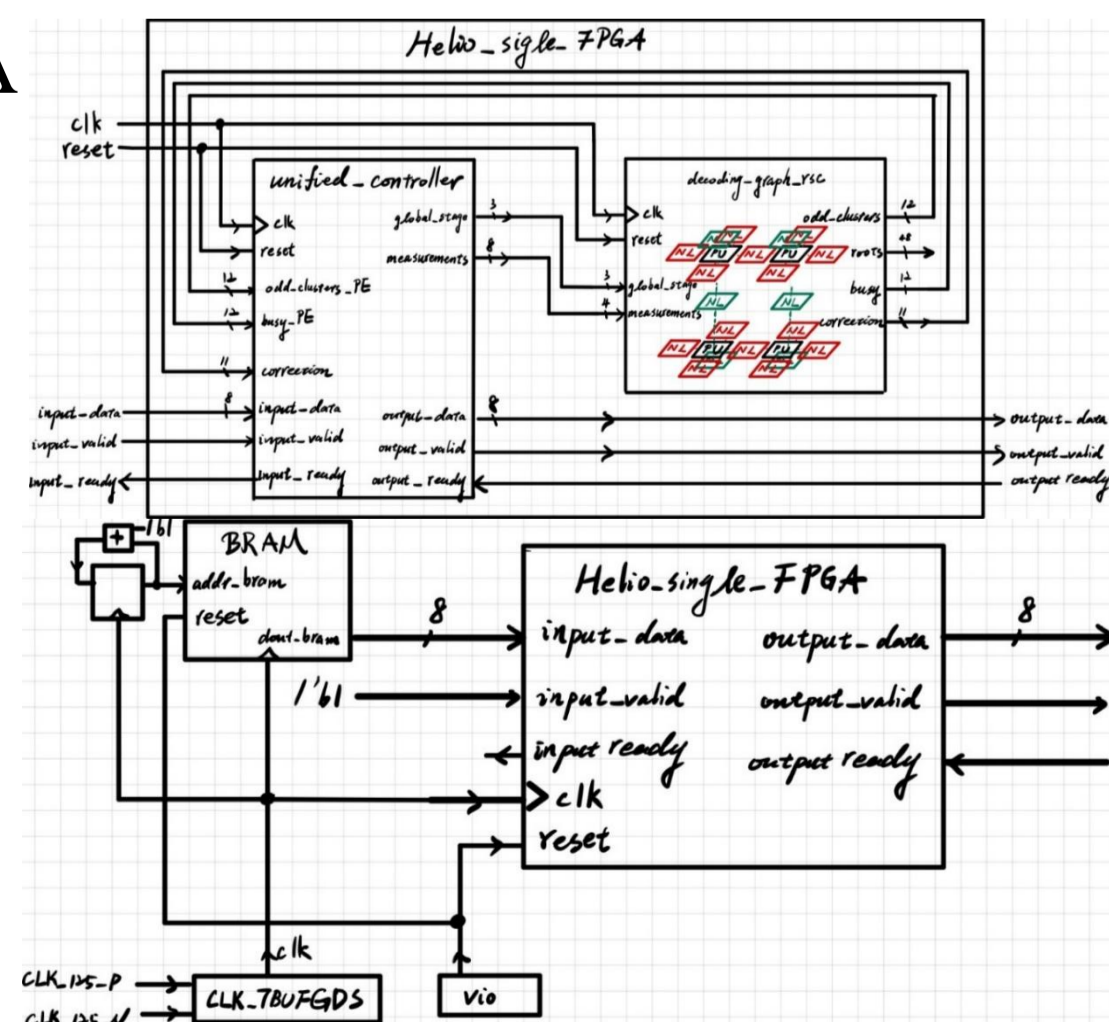 A
Helio_sigle_FPGA
clk
reset
unified_controller
clk
reset
odd_clusters_PE
busy_PE
correction
input_data
input_valid
Input_ready
global_stage
measurements
output_data
output_valid
output_ready
3
8
12
12
11
8
8
decoding_graph_rsc
clk
reset
global_stage
measurements
3
4
odd_clusters
roots
busy
correction
12
48
12
11
NL NL
NL PU NL PU NL
NL NL
NL NL
NL NL
NL PU NL PU NL
NL NL
input_data
input_valid
input_ready
output_data
output_valid
output ready
1'b1
+
BRAM
addr_bram
reset
dout_bram
8
1'b1
Helio_single_FPGA
input_data
input_valid
input ready
clk
reset
output_data
output_valid
output ready
8
clk
CLK_125_P
CLK_125_N
CLK_7BUFGDS
Vio